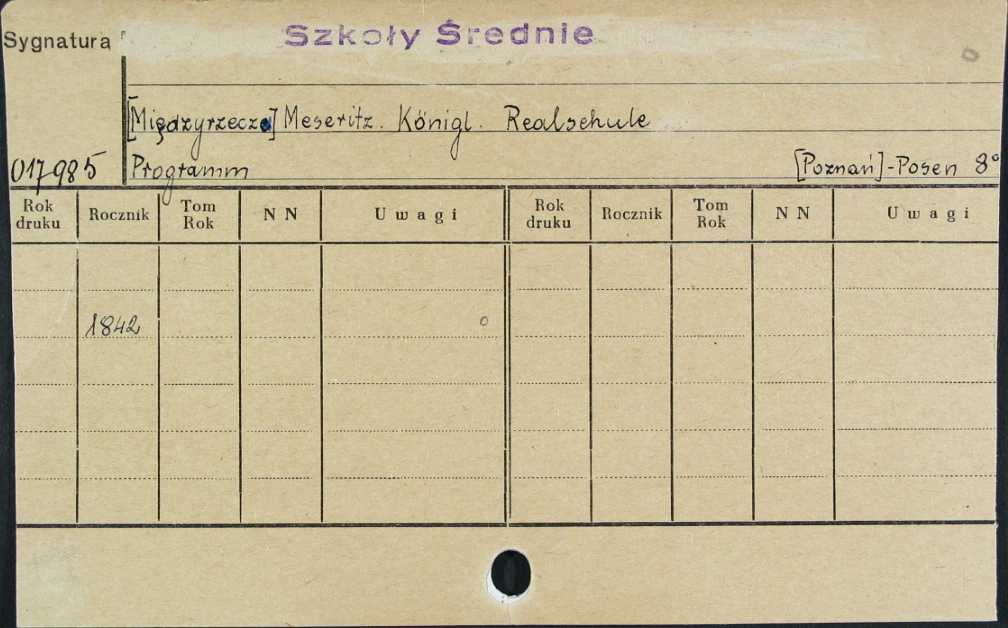 Szkoły Średnie
Sygnatura
[Międzyrzecze] Meseritz. Königl. Realschule
017985 Programm [Poznań]-Posen 8°
Rok druku Rocznik Tom Rok N N Uwagi Rok druku Rocznik Tom Rok N N Uwagi
1842